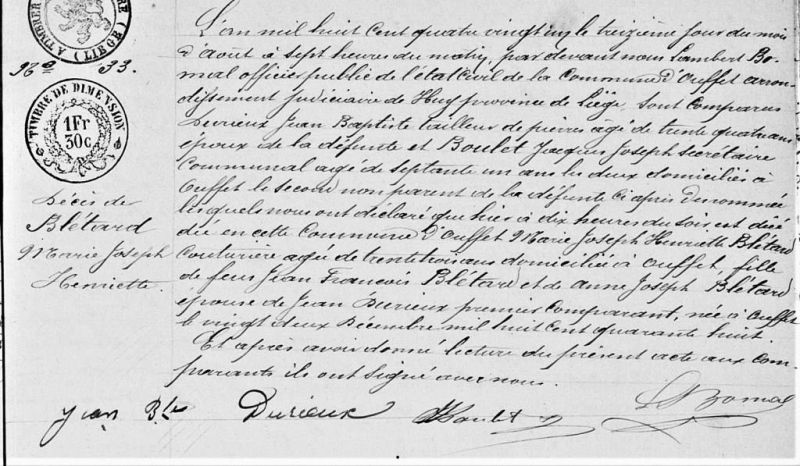 A TIMBRER
(LIÈGE)
N° 33.
TIMBRE DE DIMENSION
1Fr
30c
Décès de
Blétard
Marie Joseph
Henriette.
L'an mil huit cent quatre vingt un le treizième jour du mois
d'août à sept heures du matin, par devant nous Lambert Bo-
mal officier public de l'état civil de la Commune d'Ouffet arron-
dissement judiciaire de Huy province de Liège, sont comparus
Durieux Jean Baptiste tailleur de pierres âgé de trente quatre ans
époux de la défunte et Boulet Jacques Joseph Secrétaire
Communal âgé de septante un ans les deux domiciliés à
Ouffet le second non parent de la défunte ci après dénommée
lesquels nous ont déclaré que hier à dix heures du soir, est décé
dée en cette Commune d'Ouffet Marie Joseph Henriette Blétard
Couturière agée de trente trois ans domiciliée à Ouffet, fille
de feus Jean François Blétard et de Anne Joseph Blétard
épouse de Jean Durieux premier Comparant, née à Ouffet
le vingt deux Décembre mil huit cent quarante huit.
Et après avoir donné lecture du présent acte aux com-
parants ils ont signé avec nous.
Jean Bte Durieux Boulet L Bomal